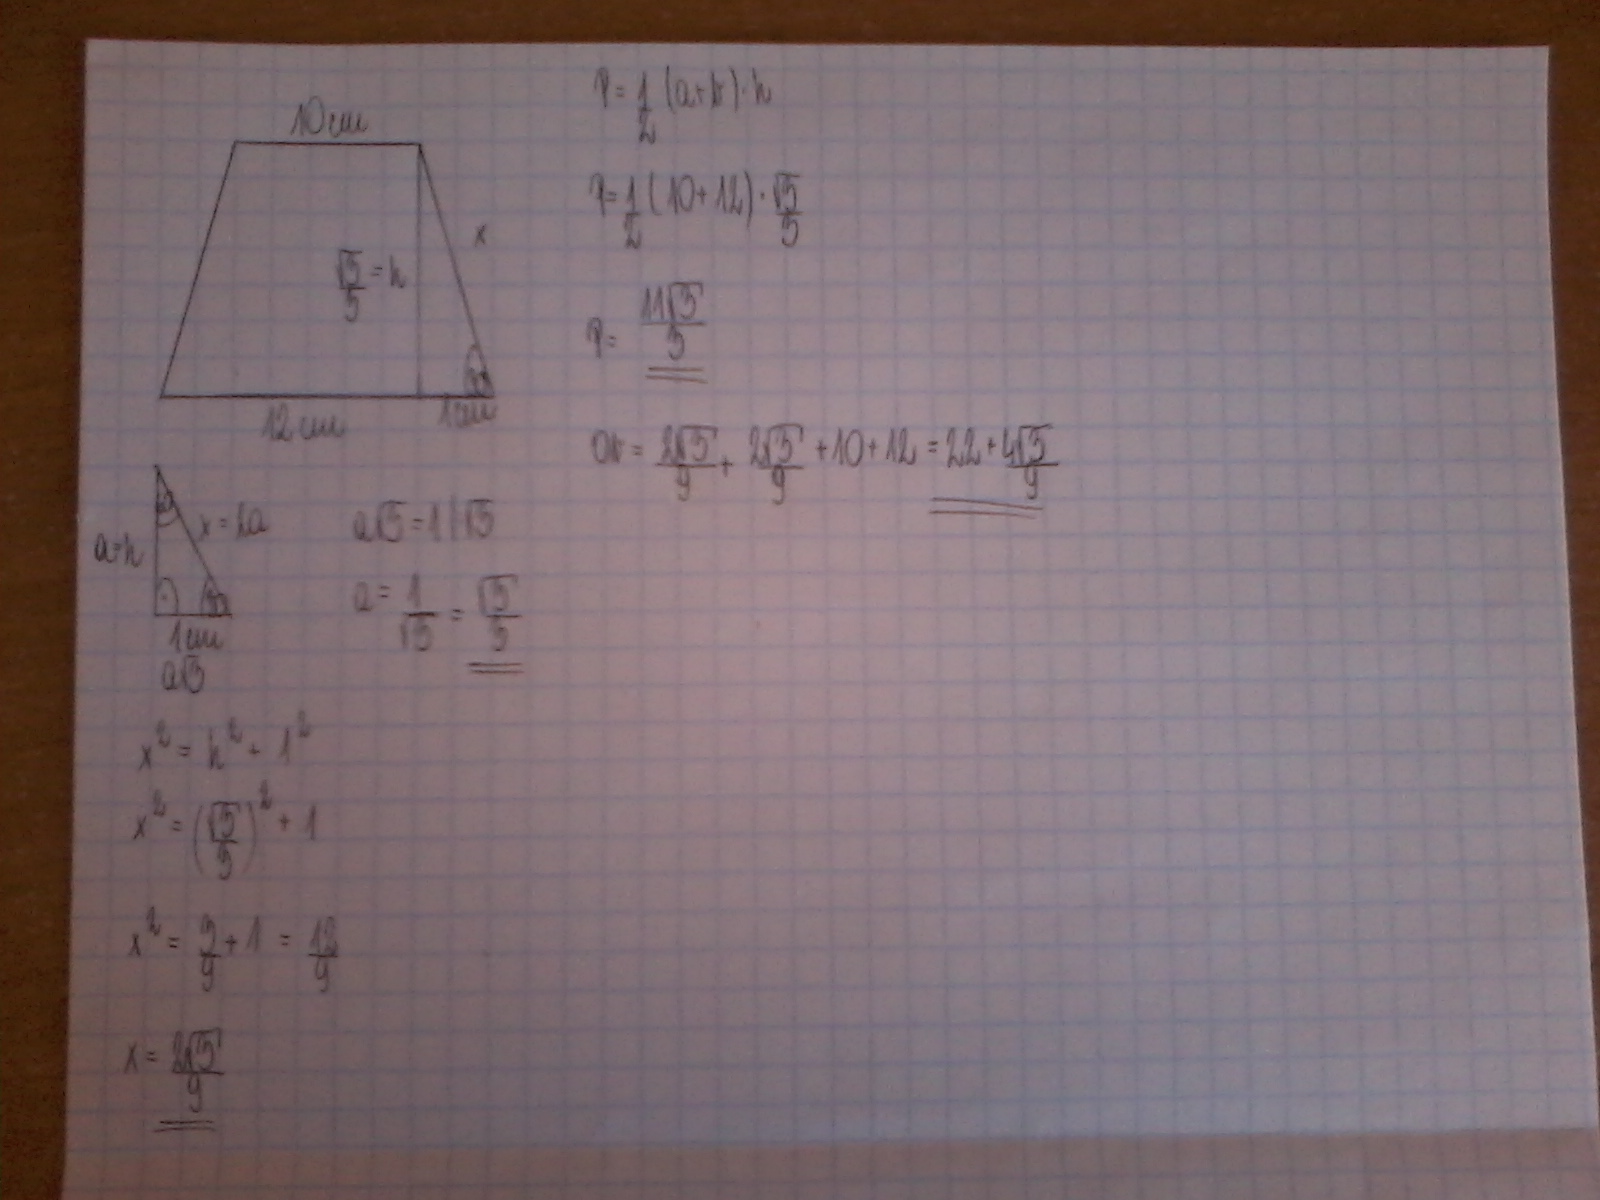 10cm
√3/3 = h
x
12cm
1cm
a=h
x=2a
1cm
a√3
a√3 = 1 |:√3
a = 1/√3 = √3/3
x² = h² + 1²
x² = (√3/3)² + 1
x² = 3/9 + 1 = 12/9
x = 2√3/9
P = 1/2 (a+b)·h
P = 1/2 (10+12)·√3/3
P = 11√3/3
Ob = 2√3/9 + 2√3/9 + 10 + 12 = 22 + 4√3/9